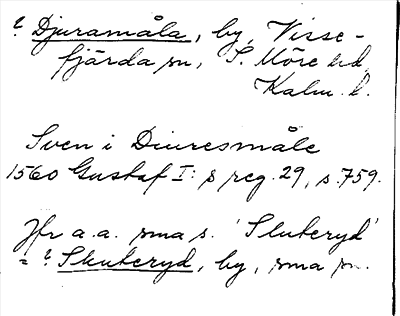 ? Djuramåla, by, Visse-
fjärda sn, S. Möre hd,
Kalm. l.
Sven i Diuresmåle
1560 Gustaf I:s reg. 29, s. 759.
Jfr a.a. sma s. 'Sluteryd'
= ? Skuteryd, by, sma sn.